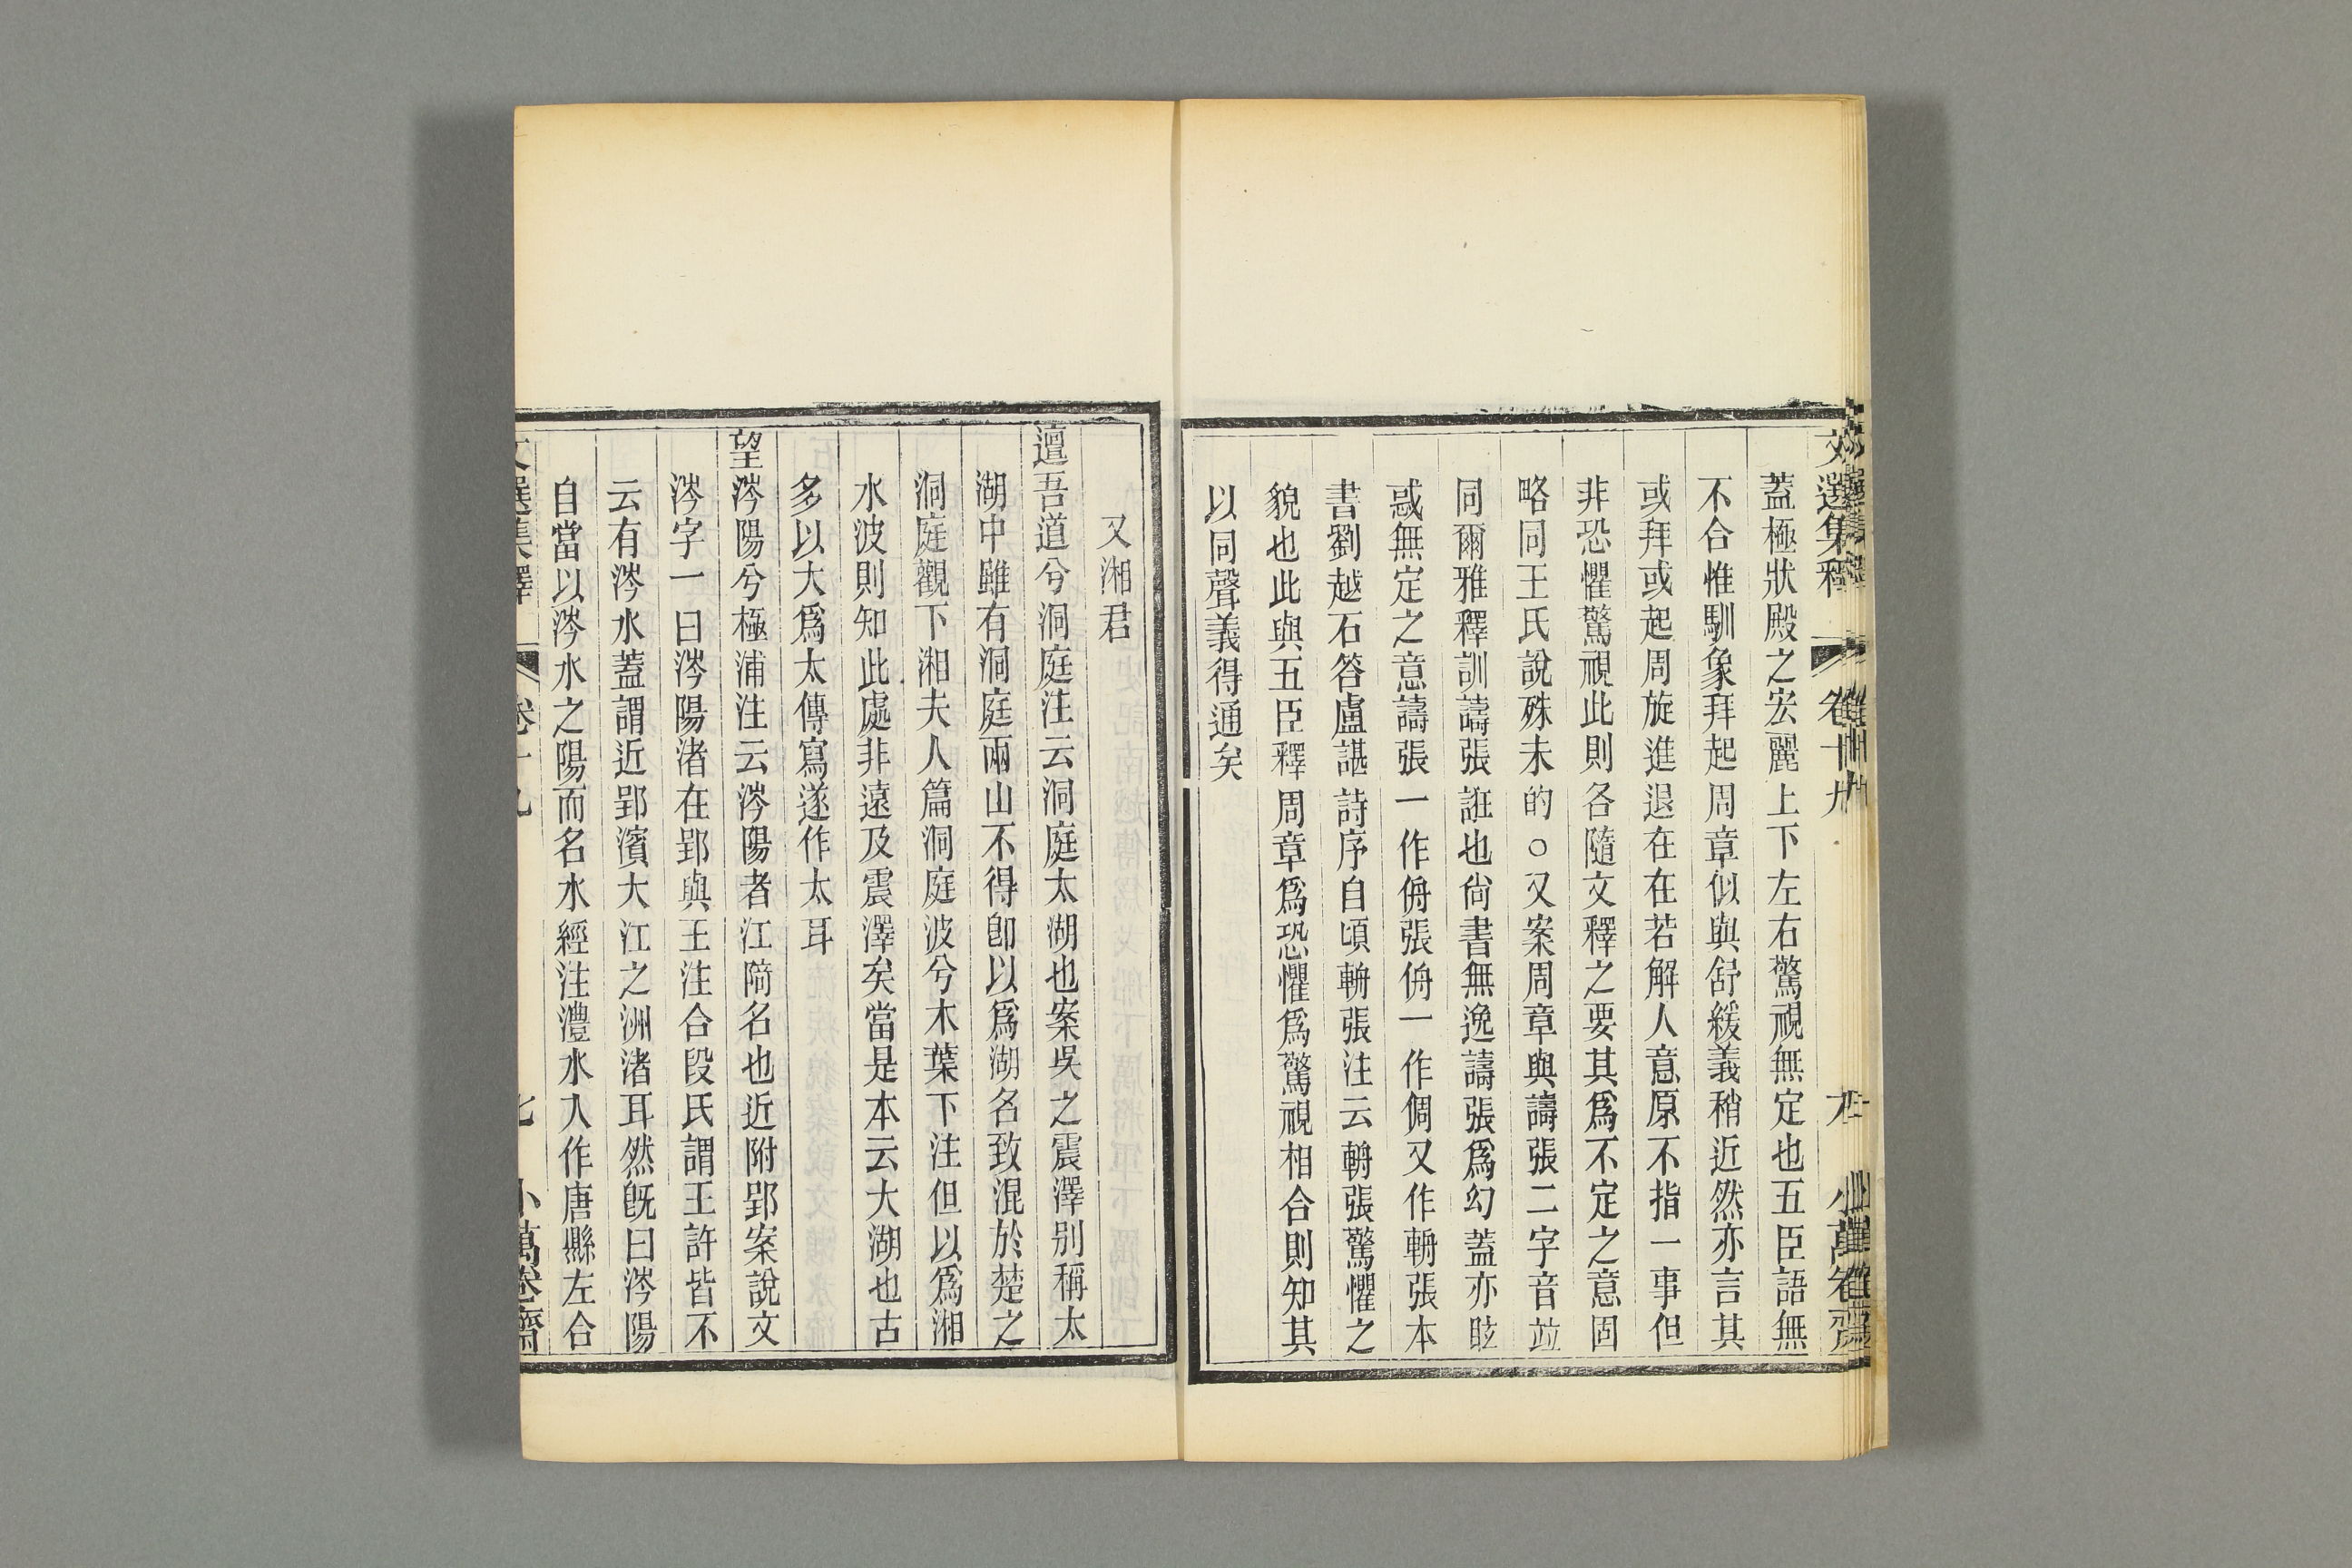 文選集釋 卷十九 小萬卷齋
蓋極狀殿之宏麗上下左右驚視無定也五臣語無
不合惟馴象拜起周章似與舒緩義稍近然亦言其
或拜或起周旋進退在在若解人意原不指一事但
非恐懼驚視此則各隨文釋之要其爲不定之意固
略同王氏說殊未的○又案周章與譸張二字音竝
同爾雅釋訓譸張誑也尙書無逸譸張爲幻蓋亦眩
惑無定之意譸張一作侜張侜一作倜又作輈張本
書劉越石答盧諶詩序自頃輈張注云輈張驚懼之
貌也此與五臣釋周章爲恐懼爲驚視相合則知其
以同聲義得通矣
又湘君
邅吾道兮洞庭注云洞庭太湖也案吳之震澤别稱太
湖中雖有洞庭兩山不得卽以爲湖名致混於楚之
洞庭觀下湘夫人篇洞庭波兮木葉下注但以爲湘
水波則知此處非遠及震澤矣當是本云大湖也古
多以大爲太傳寫遂作太耳
望涔陽兮極浦注云涔陽者江碕名也近附郢案說文
涔字一曰涔陽渚在郢與王注合段氏謂王許皆不
云有涔水蓋謂近郢濱大江之洲渚耳然旣曰涔陽
自當以涔水之陽而名水經注澧水入作唐縣左合
文選集釋 卷十九 七 小萬卷齋